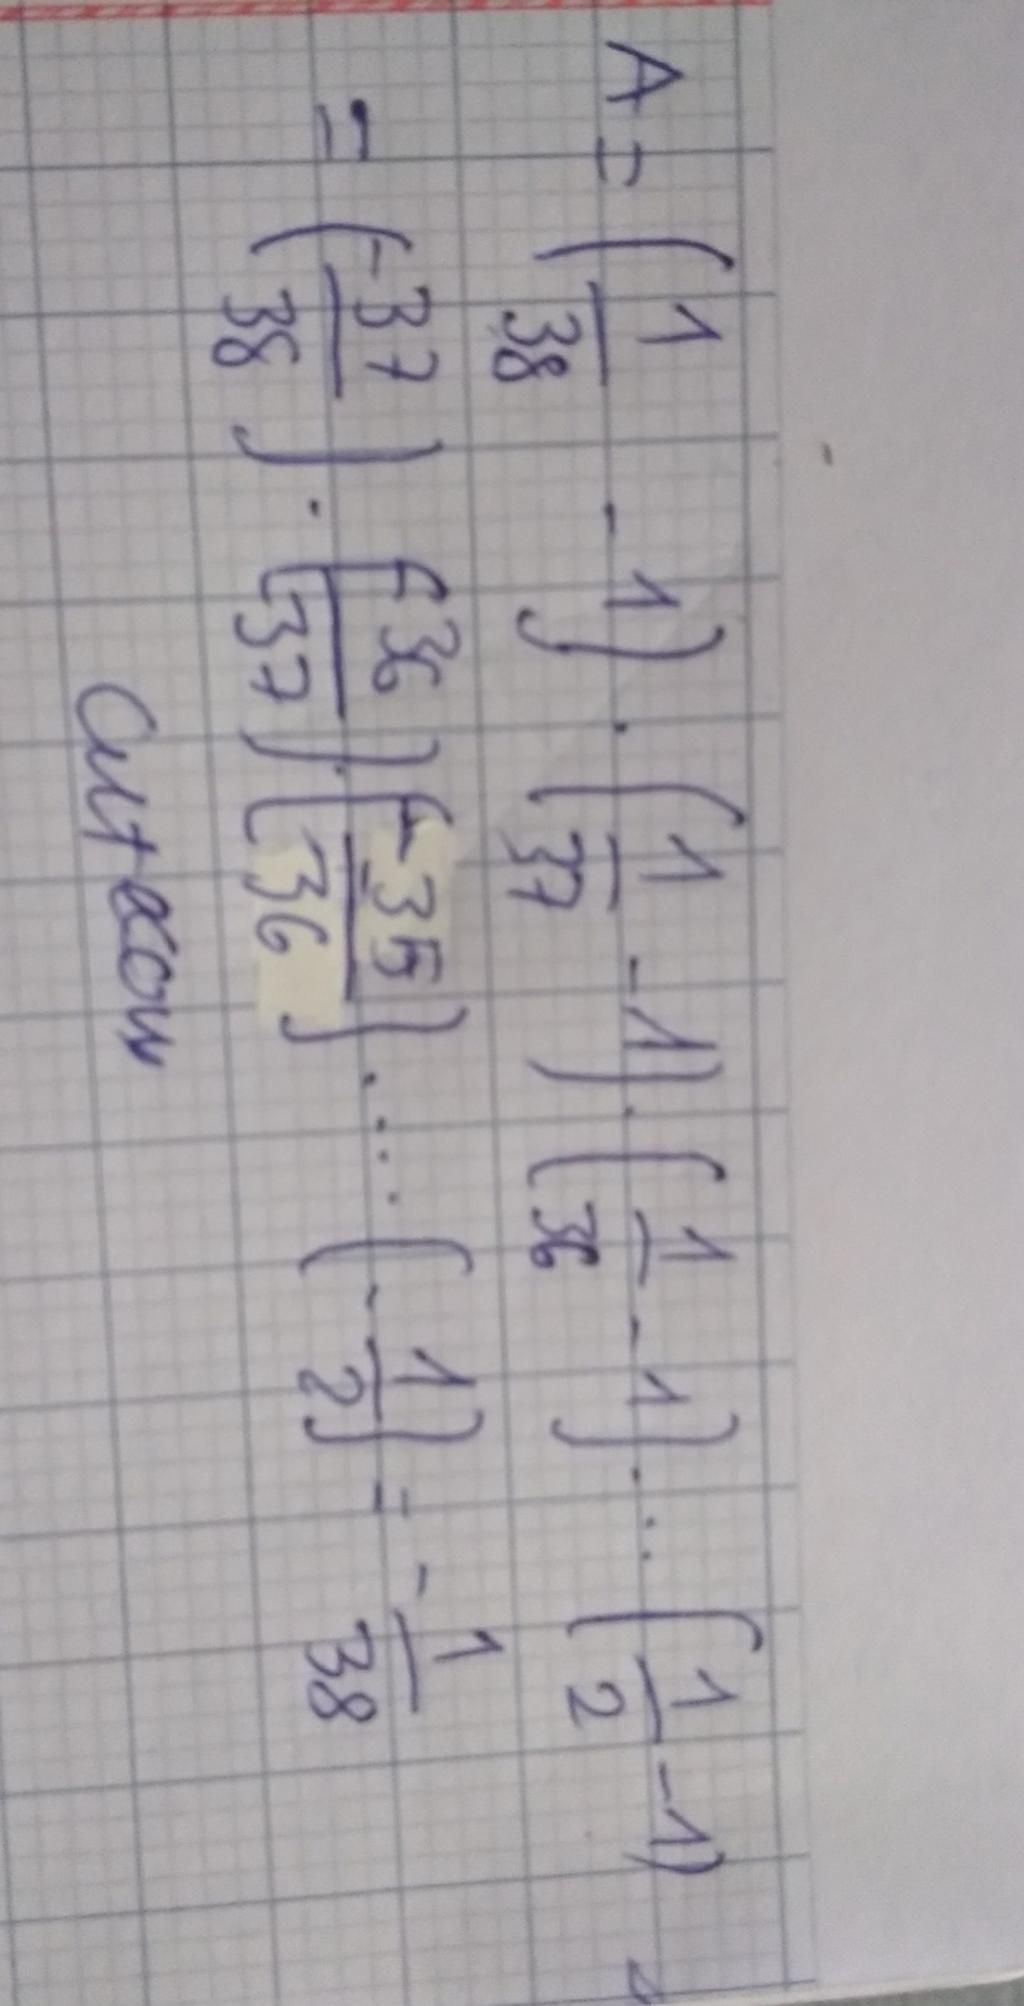 A = (1/38 - 1) · (1/37 - 1) · (1/36 - 1) · ... (1/2 - 1)
= (-37/38) · (-36/37) · (-35/36) · ... (-1/2) = -1/38